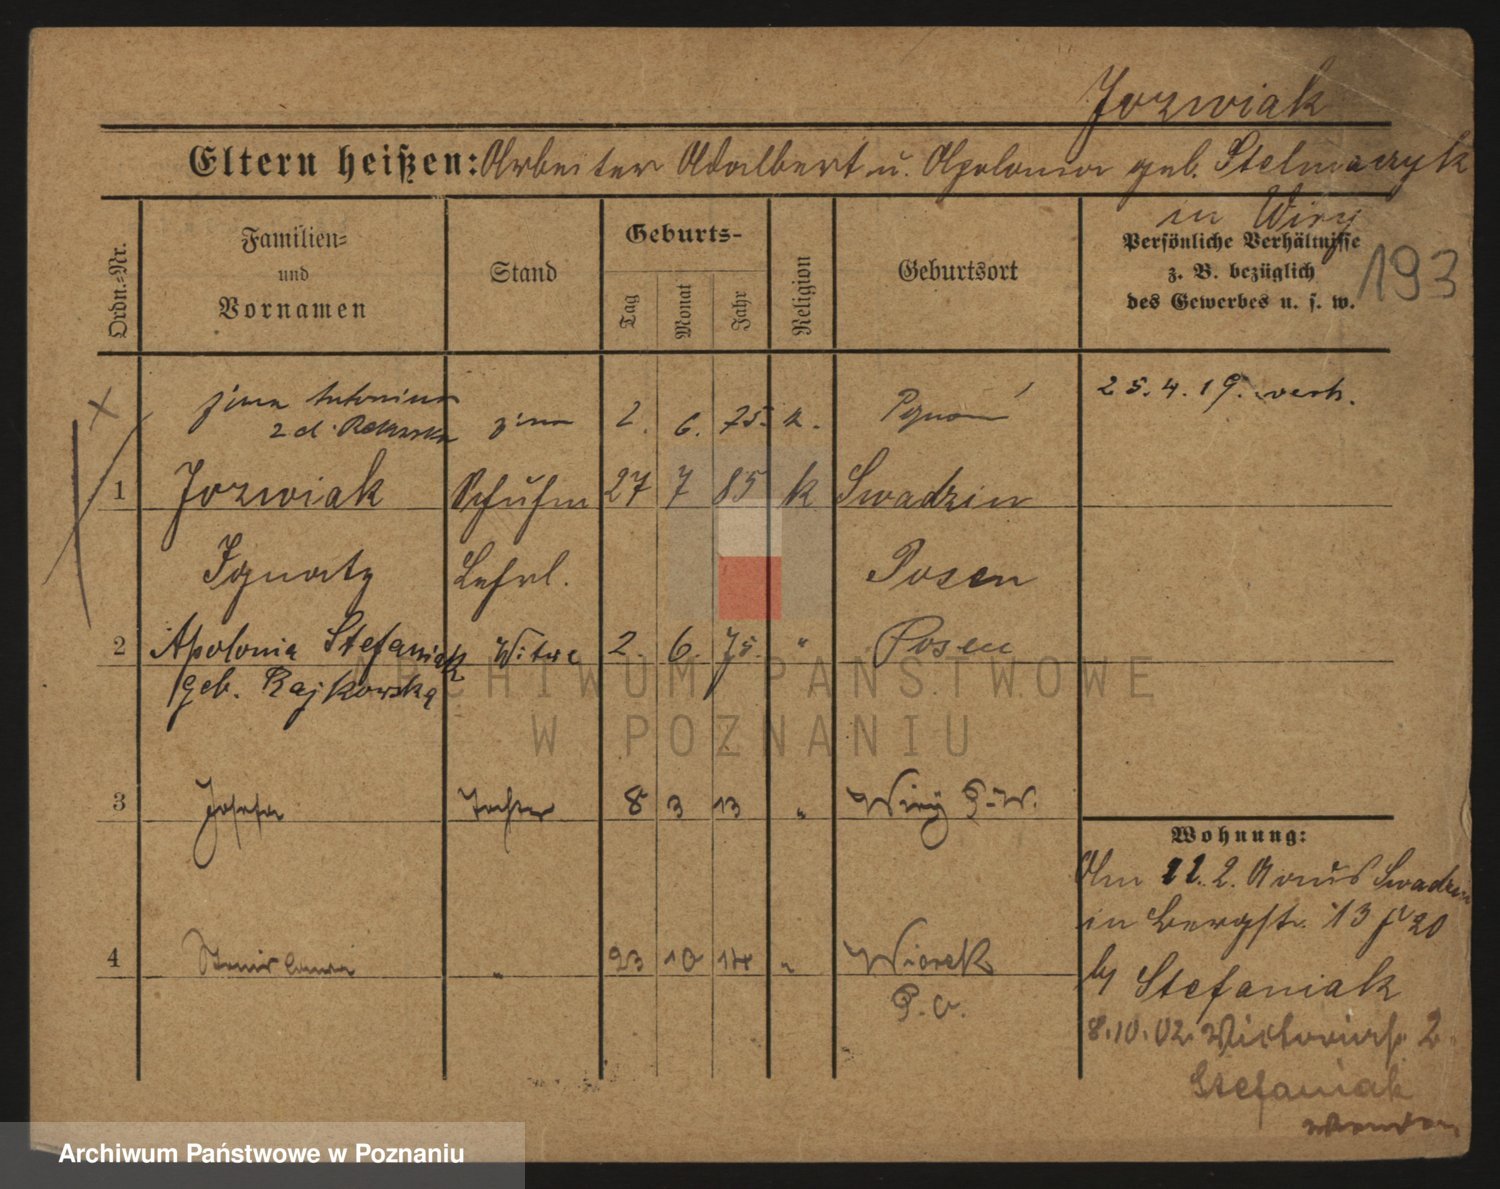 Jozwiak
Eltern heißen: Arbeiter Adalbert u. Apolonia geb. Stelmaczyk
in Wiry
193
Ordn.-Nr.
Familien-
und
Vornamen
Stand
Geburts-
Tag
Monat
Jahr
Religion
Geburtsort
Persönliche Verhältnisse
z. B. bezüglich
des Gewerbes u. s. w.
żona Antonina
z d.
żona 2. 6. 75. k. Poznań
25.4.19. verh.
1 Jozwiak Schuhm 27 7 85 k Swadzin
Ignatz Lehrl. Posen
2 Apolonia Stefaniak Witwe 2. 6. 75. " Posen
geb. Rajkowska
ARCHIWUM PAŃSTWOWE
W POZNANIU
3 Josefa Tochter 8 3 13 " Wiry P.W.
4 Stanislawa " 23 10 14 " Wiorek
P. O.
Wohnung:
Am 22. 2. 0 aus Swadzin
in Bergstr. 13 20
by Stefaniak
8.10.02. Victoriastr. 2
Stefaniak
Archiwum Państwowe w Poznaniu